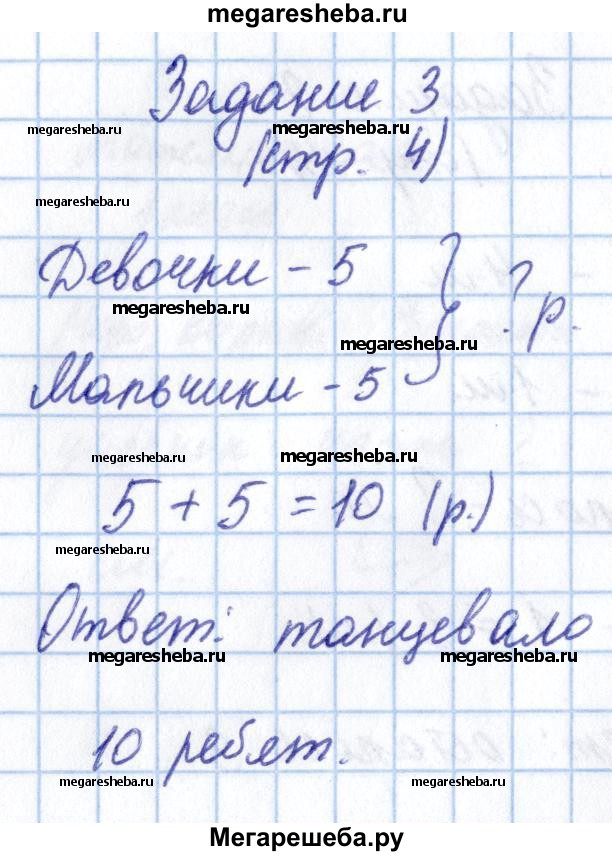 megaresheba.ru
Задание 3
megaresheba.ru megaresheba.ru
(стр. 4)
megaresheba.ru
Девочки - 5 } ? р.
megaresheba.ru
megaresheba.ru
Мальчики - 5
megaresheba.ru megaresheba.ru
5 + 5 = 10 (р.)
megaresheba.ru megaresheba.ru
Ответ: танцевало
megaresheba.ru megaresheba.ru
10 ребят.
megaresheba.ru megaresheba.ru
Мегарешеба.ру